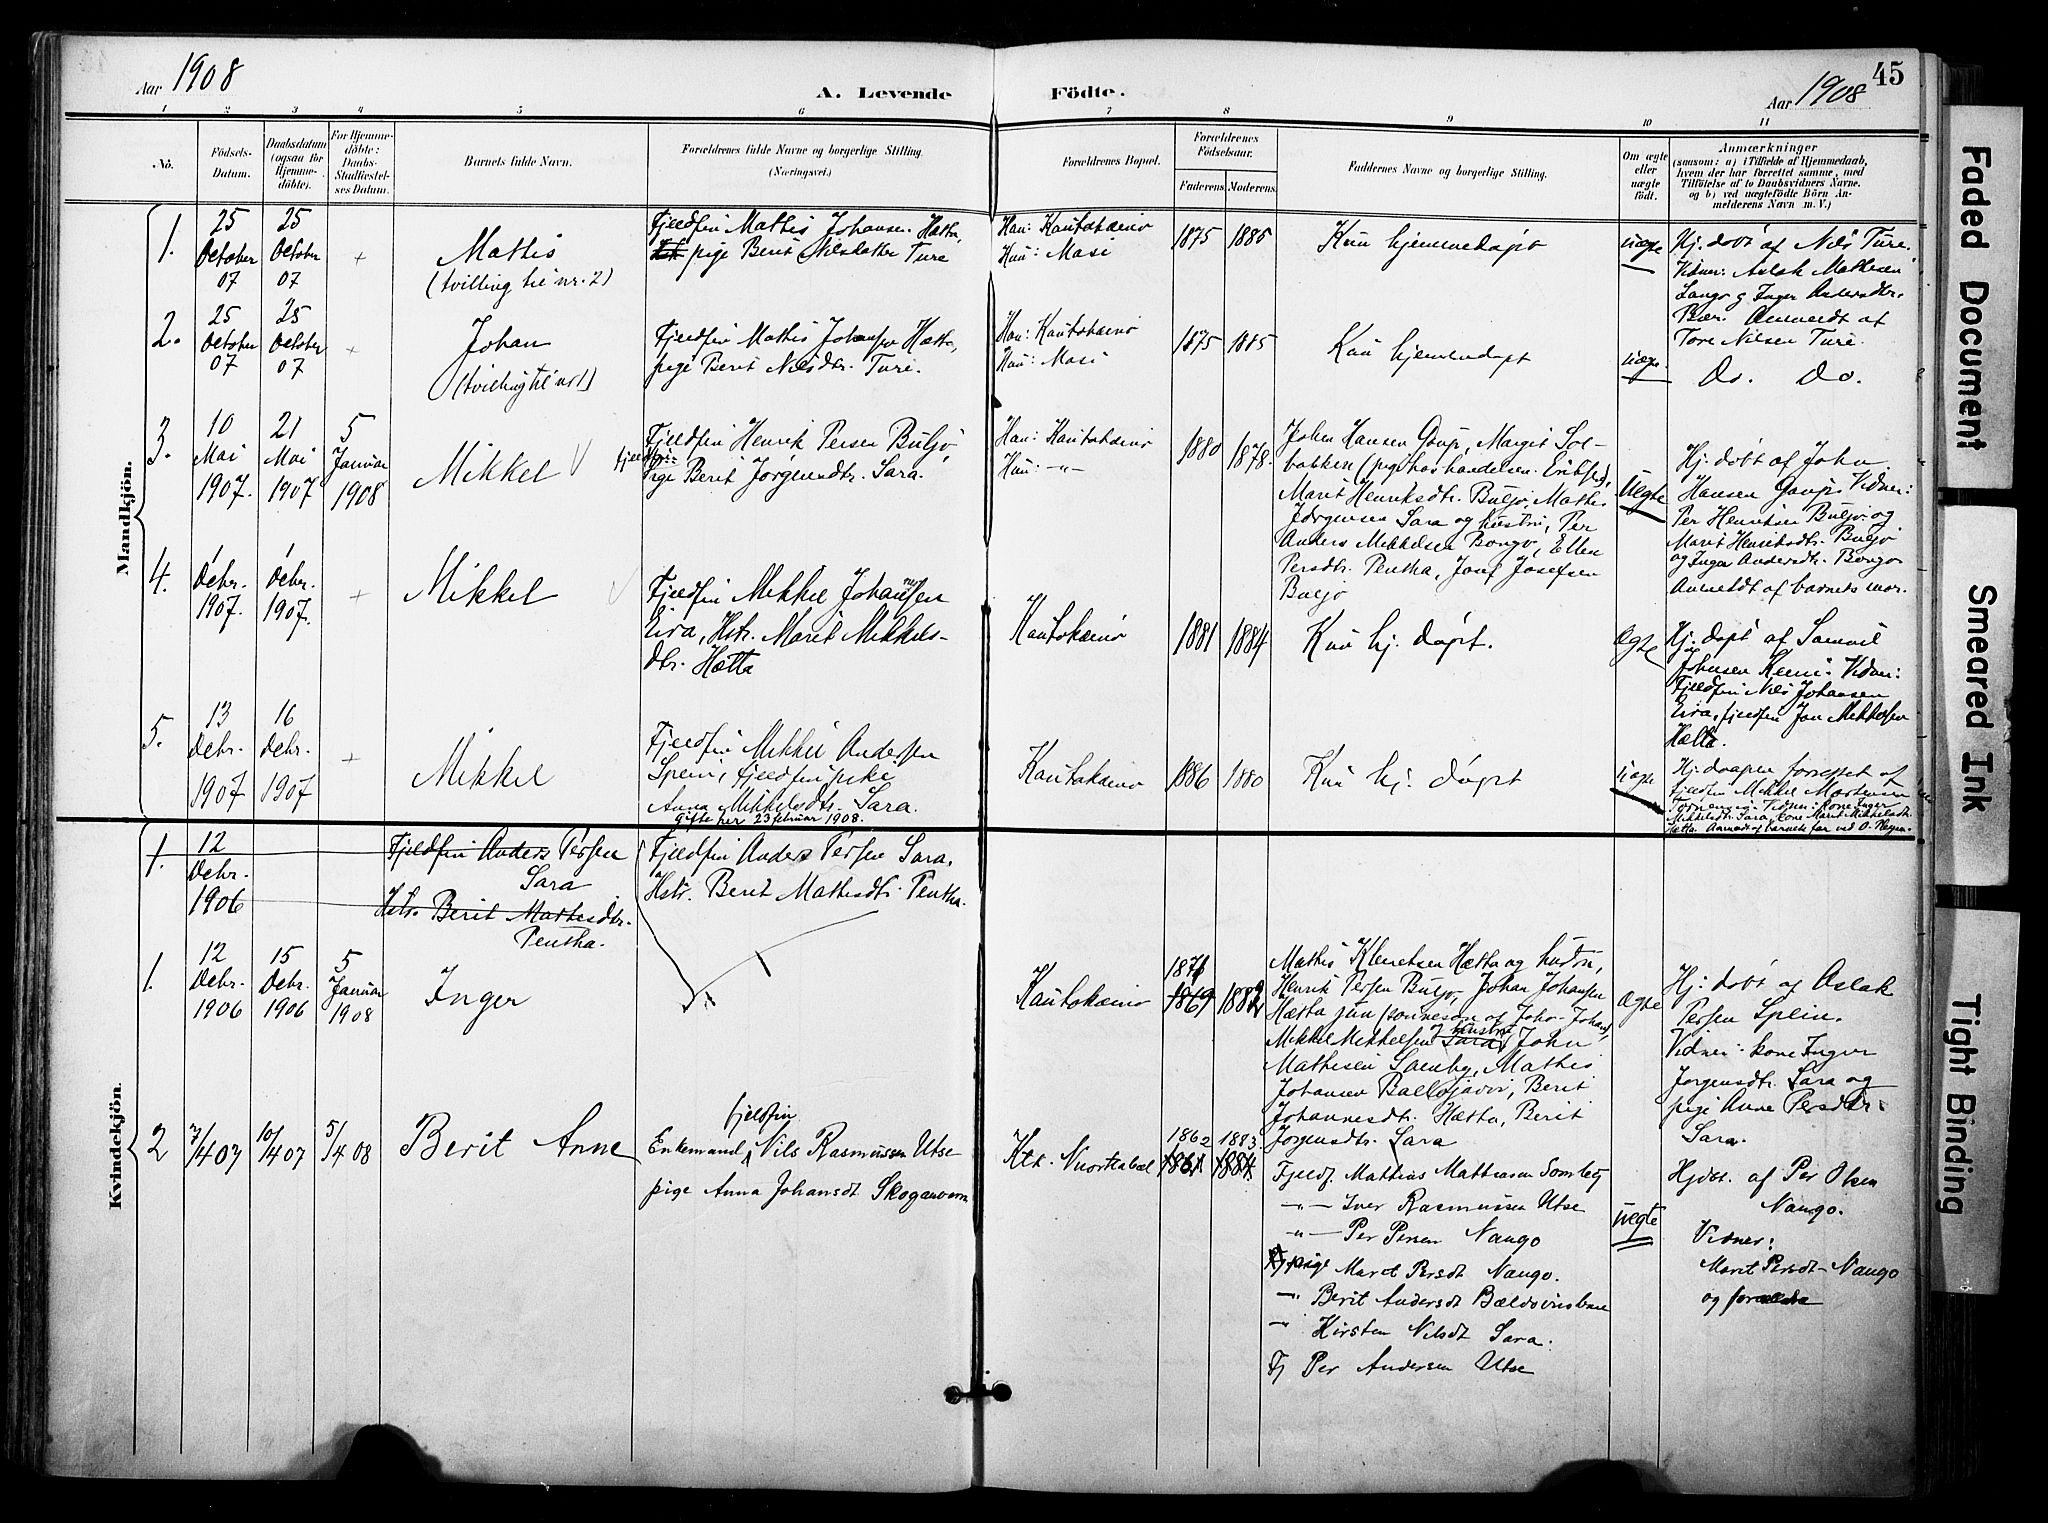 Aar 1908
A. Levende
Födte.
Aar 1908
45
1 2 3 4 5 6 7 8 9 10 11
No.
Födsels-
Datum.
Daabsdatum
(ogsaa for
Hjemme-
döbte).
For Hjemme-
döbte:
Daabs-
Stadfæstel-
ses Datum.
Barnets fulde Navn.
Forældrenes fulde Navne og borgerlige Stilling.
(Næringsvei.)
Forældrenes Bopæl.
Forældrenes
Födselsaar.
Faderens. Moderens.
Faddernes Navne og borgerlige Stilling.
Om ægte
eller
uægte
födt.
Anmærkninger
(saasom: a) i Tilfælde af Hjemmedaab,
hvem der har forrettet samme, med
Tilföielse af to Daabsvidners Navne.
og b) ved uægtefödte Börn An-
melderens Navn m. V.)
Mandkjön.
1.
25
October
07
25
October
07
+
Mattis
(tvilling til nr. 2)
Fjeldfin Mattis Johansen Hætta,
pige Berit Nilsdatter Ture
Han: Kautokæino
Hun: Masi
1875
1885
Kun hjemmedøpt
uægte
Hj. døbt af Nils Ture.
Vidner: Aslak Mathesen
Lango g Inger Andersdtr.
Bær. Anmeldt af
Tore Nilsen Ture.
2.
25
October
07
25
October
07
+
Johan
(tvilling til nr 1)
Fjeldfin Mattis Johansen Hætta,
pige Berit Nilsdtr. Ture.
Han: Kautokæino
Hun: Masi
1875
1885
Kun hjemmedøpt
uægte
Do. Do.
3.
10
Mai
1907.
21
Mai
1907
5
Januar
1908
Mikkel
Fjeldfin Henrik Persen Buljo,
pige Berit Jørgensdtr. Sara.
Han: Kautokæino
Hun: -"-
1880
1878.
John Hansen Gaup, Margit Sol-
bakken (pige hos handelsm. Eriksen),
Marit Henriksdtr. Buljo, Mathis
Jørgensen Sara og hustru, Per
Anders Mikkelsen Bongo, Ellen
Persdtr. Pentha, Josef Josefsen
Buljo
Uægte
Hj. døbt af John
Hansen Gaup. Vidner:
Per Henriksen Buljo og
Marit Henriksdtr. Buljo
og Inger Andersdtr. Bongo
Anmeldt af barnets mor.
4.
6
Debr.
1907.
6
Debr.
1907.
+
Mikkel
Fjeldfin Mikkel Johansen
Eira, Hstr. Marit Mikkels-
dtr. Hætta
Kautokæino
1881
1884
Kun hj. døpt.
Ægte
Hj. døpt af Samuel
Johnsen Kemi. Vidner:
Fjeldfin Nils Johansen
Eira, fjeldfin Jan Mikkelsen
Hætta.
5.
13
Debr.
1907
16
Debr.
1907
+
Mikkel
Fjeldfin Mikkel Andersen
Spein, fjeldfinpike
Anna Mikkelsdtr. Sara.
Gifte her 23 februar 1908.
Kautokæino
1886
1880
Kun hj. døpt
uægte
Hj. daapen forrettet af
fjeldfin Mikkel Mortensen
Vidner: kone Inger
Mikkelsdtr. Sara, kone Marit Mikkelsdtr.
Hætta. Anmeldt af barnets far
Kvindekjön.
1.
12
Debr.
1906
Fjeldfin Anders Persen
Sara
Hstr. Berit Mathisdtr.
Pentha.
Fjeldfin Anders Persen Sara.
Hstr. Berit Mathisdtr. Pentha.
1.
12
Debr.
1906
15
Debr.
1906
5
Januar
1908
Inger
Kautokæino
1871
1869
1882
Mathis Klemetsen Hætta og hustru,
Henrik Persen Buljo, Johan Johansen
Hætta jun (sønnesøn af Johs. Johans)
Mikkel Mikkelsen Sara og hustru, John
Mathisen Somby, Mathis
Johansen Balløjavri, Berit
Johannesdtr. Hætta, Berit
Jørgensdtr. Sara
Ægte
Hj. døbt af Aslak
Persen Spein.
Vidner: kone Inger
Jørgensdtr. Sara og
pige Anne Persdtr.
Sara.
2
7/4 07
10/4 07
5/4 08
Berit Anne
fjeldfin
Enkemand Nils Rasmussen Utse
pige Anna Johansdt Skoganvarre
Ktk. Nuortabæl
1862
1861
1883.
1884.
Fjeldf. Mathis Mathisen Somby
-"- Iver Rasmussen Utse
-"- Per Persen Nango
pige Maret Persdt Nango.
-"- Berit Andersdt
-"- Kirsten Nilsdt Sara.
Fj Per Andersen Utse
uægte
Hjdøbt. af Per Olsen
Nango.
Vidner:
Marit Persdt Nango
og forældre
Faded Document
Smeared Ink
Tight Binding